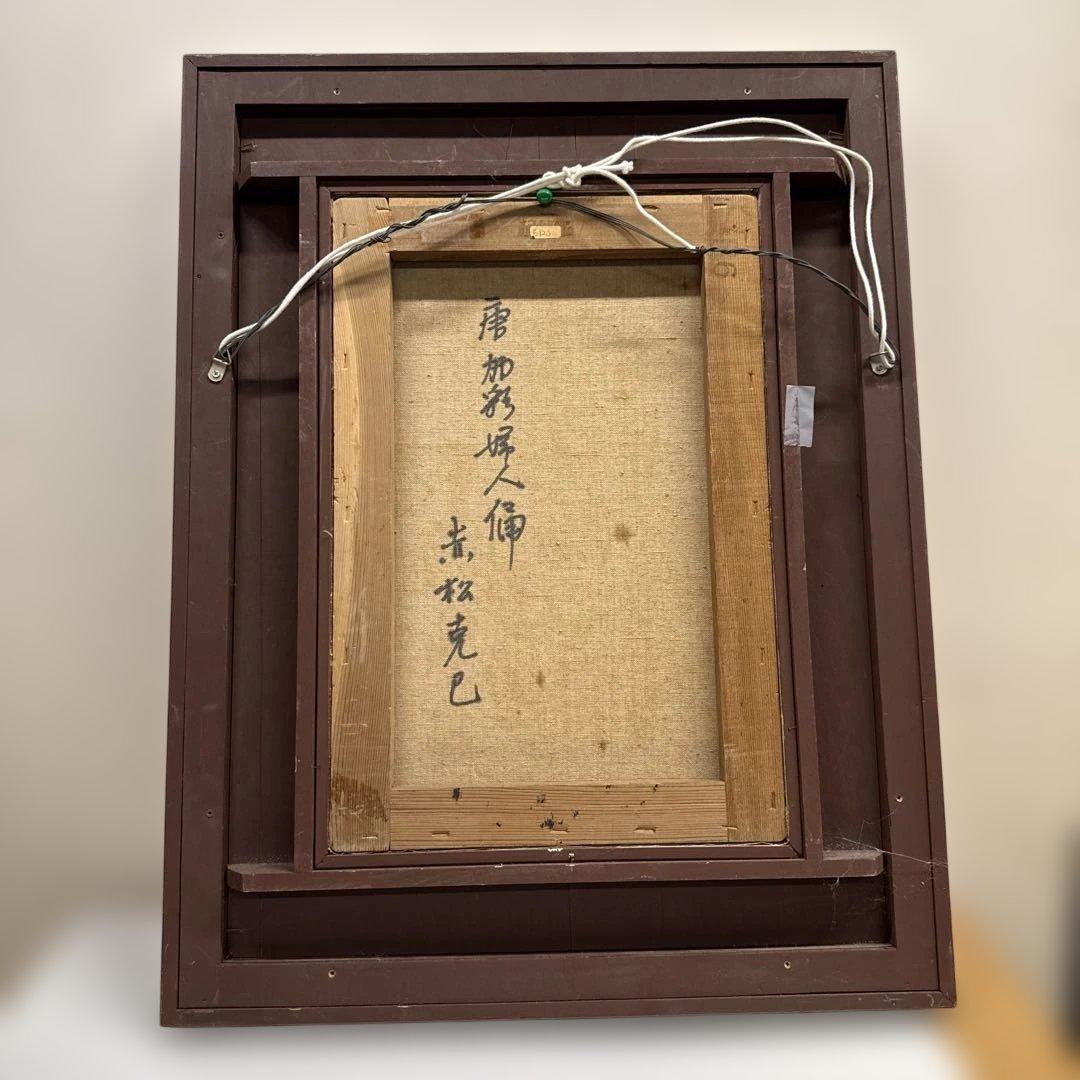 唐加彩婦人俑
赤松克己